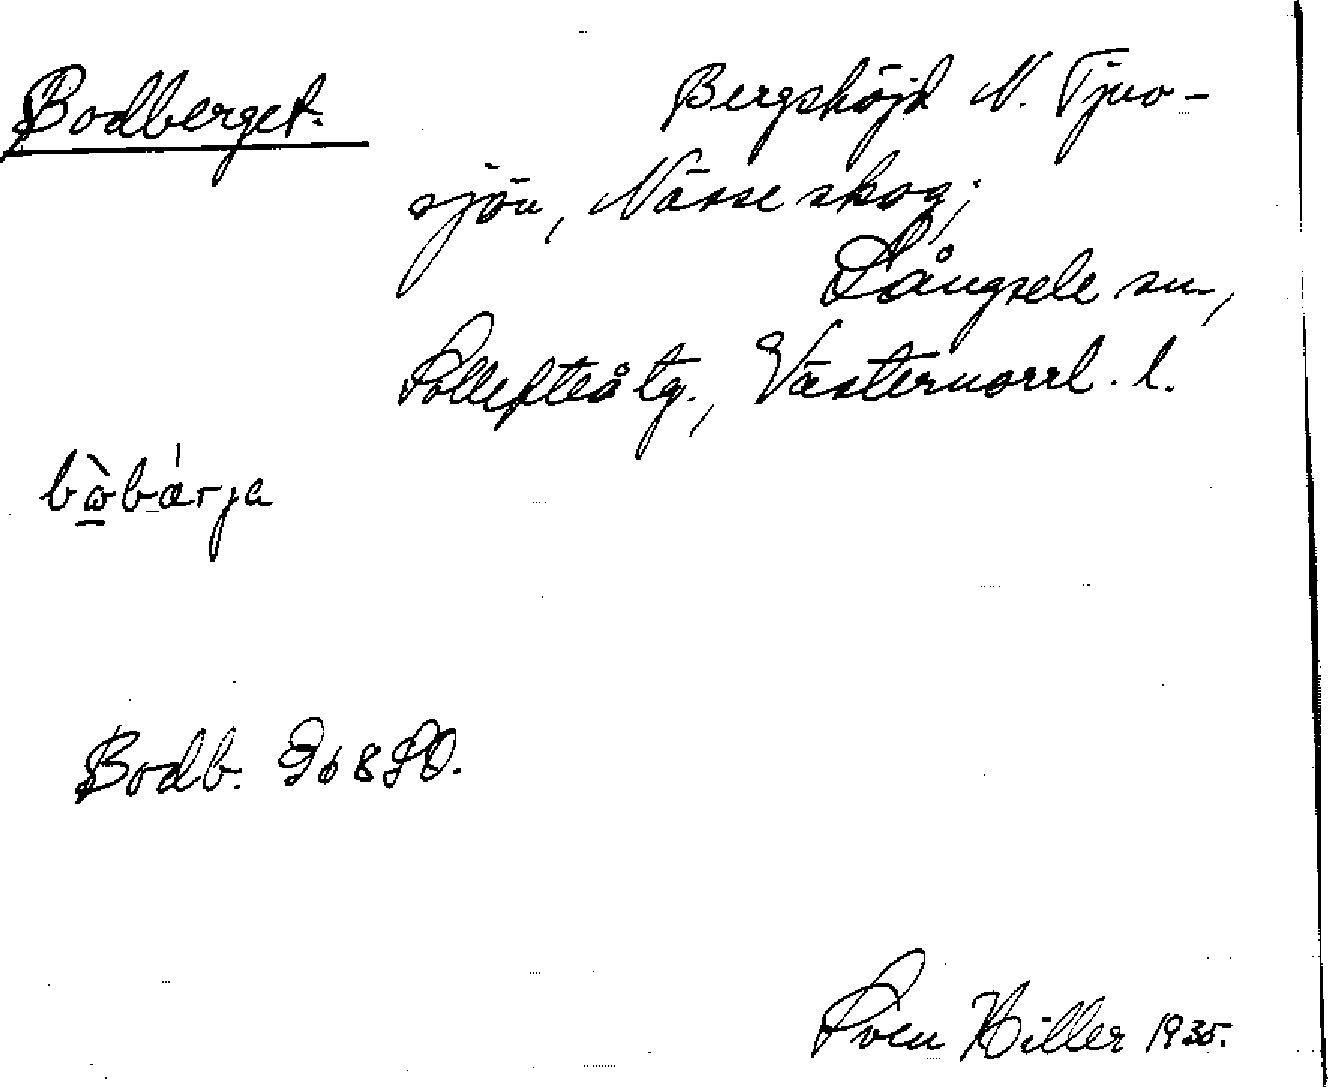 Bodberget. Bergshöjd N. Tjuv-
sjön, Nässe skog;
Långsele sn,
Sollefteå tg., Västernorrl. l.
bòbárja
Bodb. 968 SO.
Sven Hiller 1935.